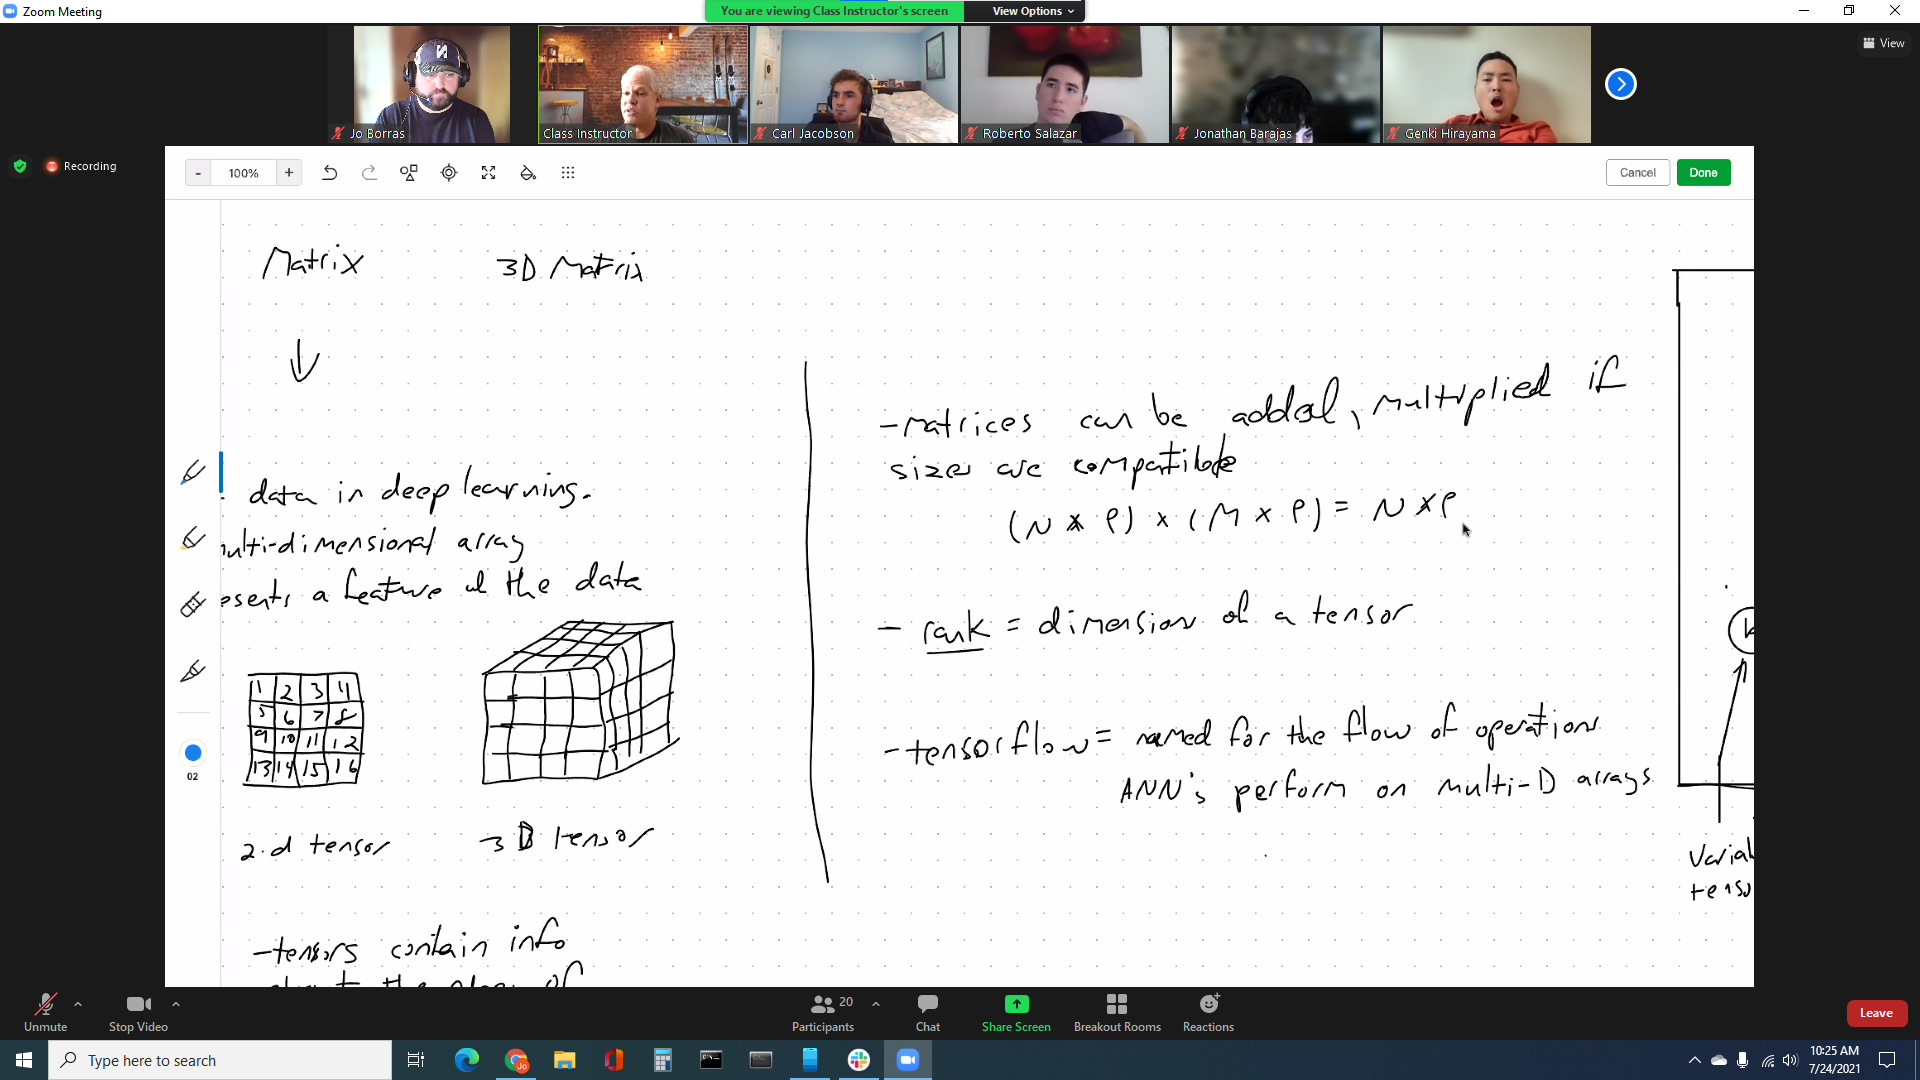 Zoom Meeting
You are viewing Class Instructor's screen
View Options
View
Jo Borras
Class Instructor
Carl Jacobson
Roberto Salazar
Jonathan Barajas
Genki Hirayama
Recording
- 100% +
Cancel
Done
Matrix
3D Matrix
data in deep learning.
multi-dimensional array
esents a feature of the data
1 2 3 4
5 6 7 8
9 10 11 12
13 14 15 16
2-d tensor
3D tensor
-tensors contain info
of
-matrices can be added, multiplied if
sizes are compatible
(N x P) x (M x P) = N x P
- rank = dimension of a tensor
-tensorflow = named for the flow of operations
ANN's perform on multi-D arrays
Variab
tenso
02
Unmute
Stop Video
20
Participants
Chat
Share Screen
Breakout Rooms
Reactions
Leave
Type here to search
Jo
10:25 AM
7/24/2021